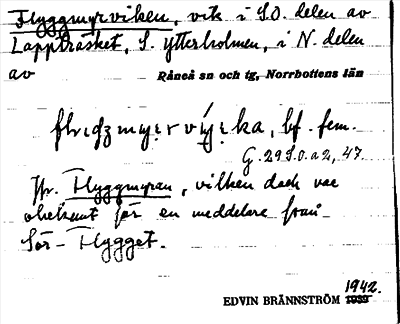 Flyggmyrviken, vik i S.O. delen av
Lappträsket, S. Ytterholmen, i N. delen
av Råneå sn och tg, Norrbottens län
bf. fem.
G. 29 S.o. a 2, 47.
Jfr. Flyggmyran, vilken dock var
obekant för en meddelare från
Sör-Flygget.
1942.
EDVIN BRÄNNSTRÖM 1939